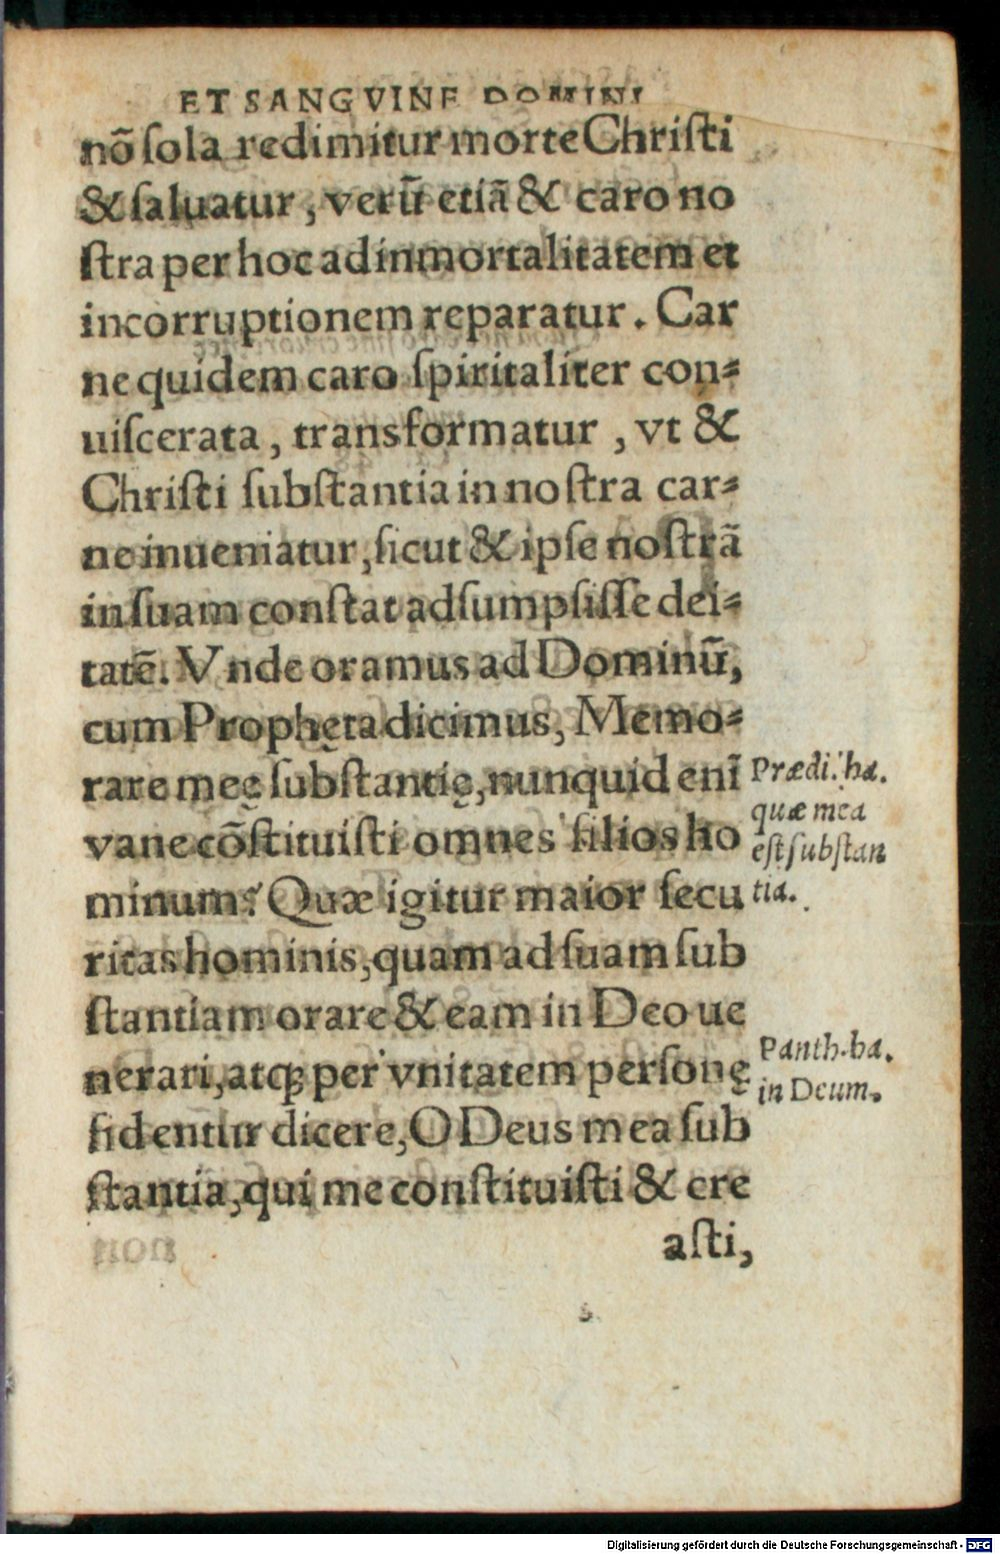 ET SANGVINE DOMINI
nō ſola redimitur morte Chriſti
& ſaluatur, verū etiā & caro no
ſtra per hoc ad inmortalitatem et
incorruptionem reparatur. Car
ne quidem caro ſpiritaliter con⸗
uiſcerata, transformatur, vt &
Chriſti ſubſtantia in noſtra car⸗
ne inueniatur, ſicut & ipſe noſtrā
in ſuam conſtat adſumpſiſſe dei⸗
tatē. Vnde oramus ad Dominū,
cum Propheta dicimus, Memo⸗
rare meę ſubſtantię, nunquid enī
vane cōſtituiſti omnes filios ho
minum? Quæ igitur maior ſecu
ritas hominis, quam ad ſuam ſub
ſtantiam orare & eam in Deo ue
nerari, atqꝫ per vnitatem perſonę
fidentur dicere, O Deus mea ſub
ſtantia, qui me conſtituiſti & cre
aſti,
Prædi. ha.
quæ mea
eſt ſubſtan
tia.
Panth. ba.
in Deum.
Digitalisierung gefördert durch die Deutsche Forschungsgemeinschaft - DFG